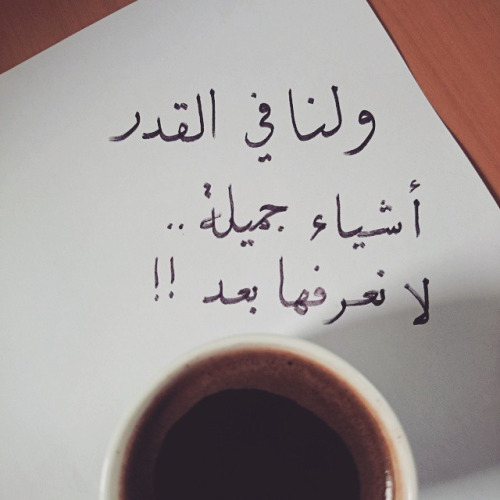 ولنا في القدر
أشياء جميلة ..
لا نعرفها بعد !!